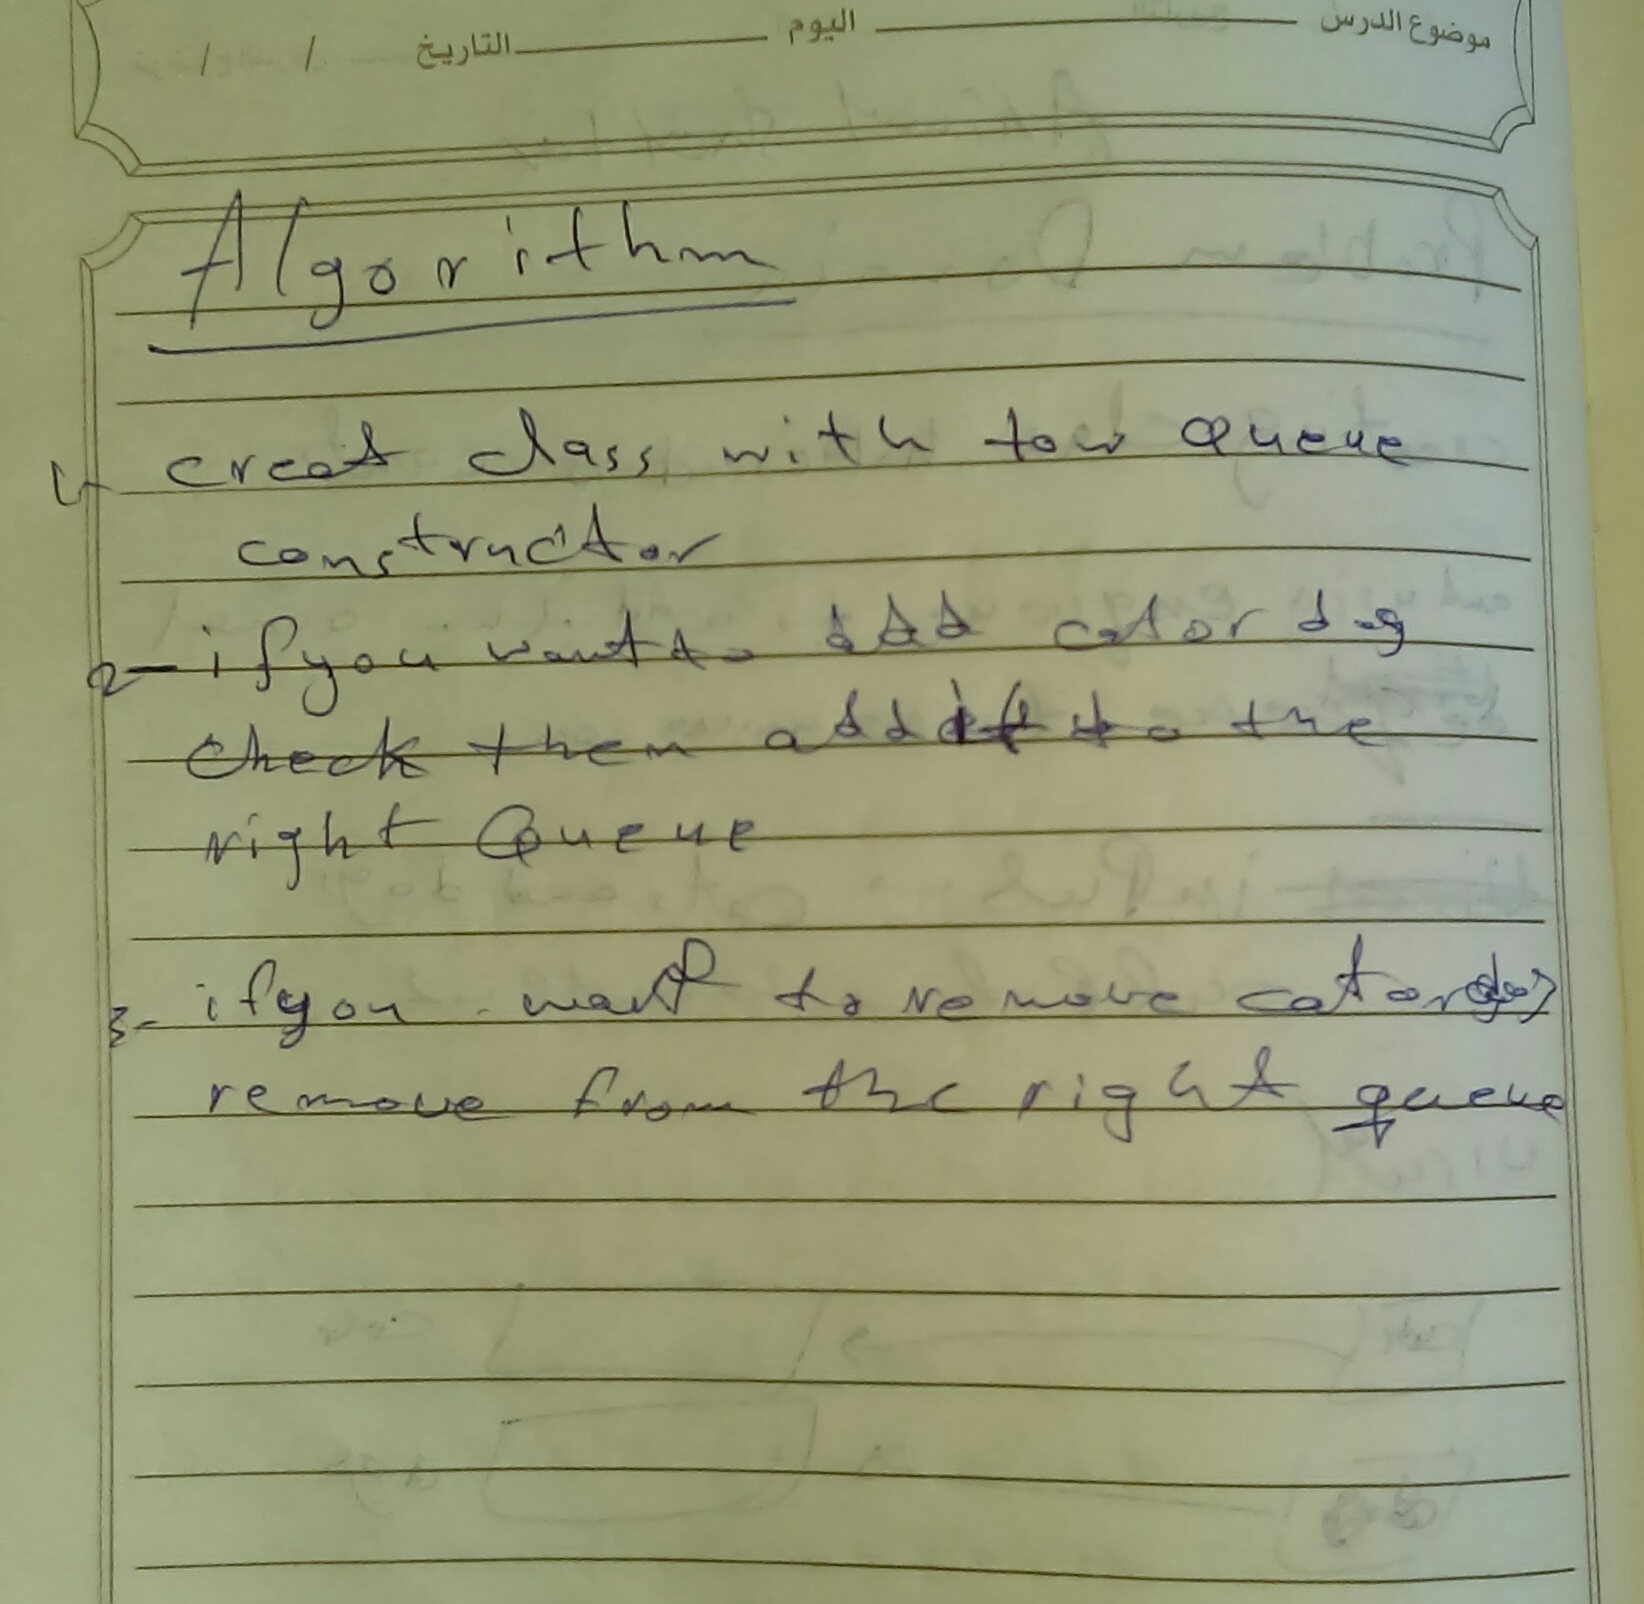 موضوع الدرس اليوم التاريخ / /
Algorithm
1- creat class with tow Queue
constructor
2- if you want to add cat or dog
check them add it to the
right Queue
3- if you want to remove cat or dog
remove from the right queue